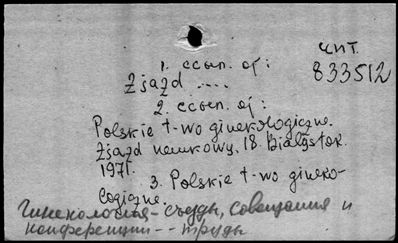 чит.
833512
1. ссып. of:
Zjazd ....
2. ссып. of:
Polskie t-wo ginekologiczne.
Zjazd naukowy. 18. Białystok.
1971.
3. Polskie t-wo gineko-
logiczne.
Гинекология - съезды, совещания и
конференции -- труды